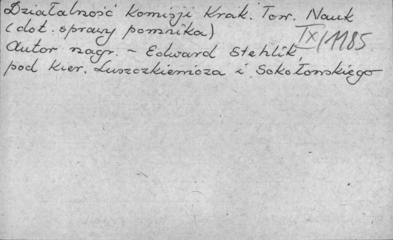 Działalność Komisji Krak. Tow. Nauk
(dot. sprawy pomnika) IX/1185
Autor nagr. - Edward Stehlik,
pod kier. Łuszczkiewicza i Sokołowskiego